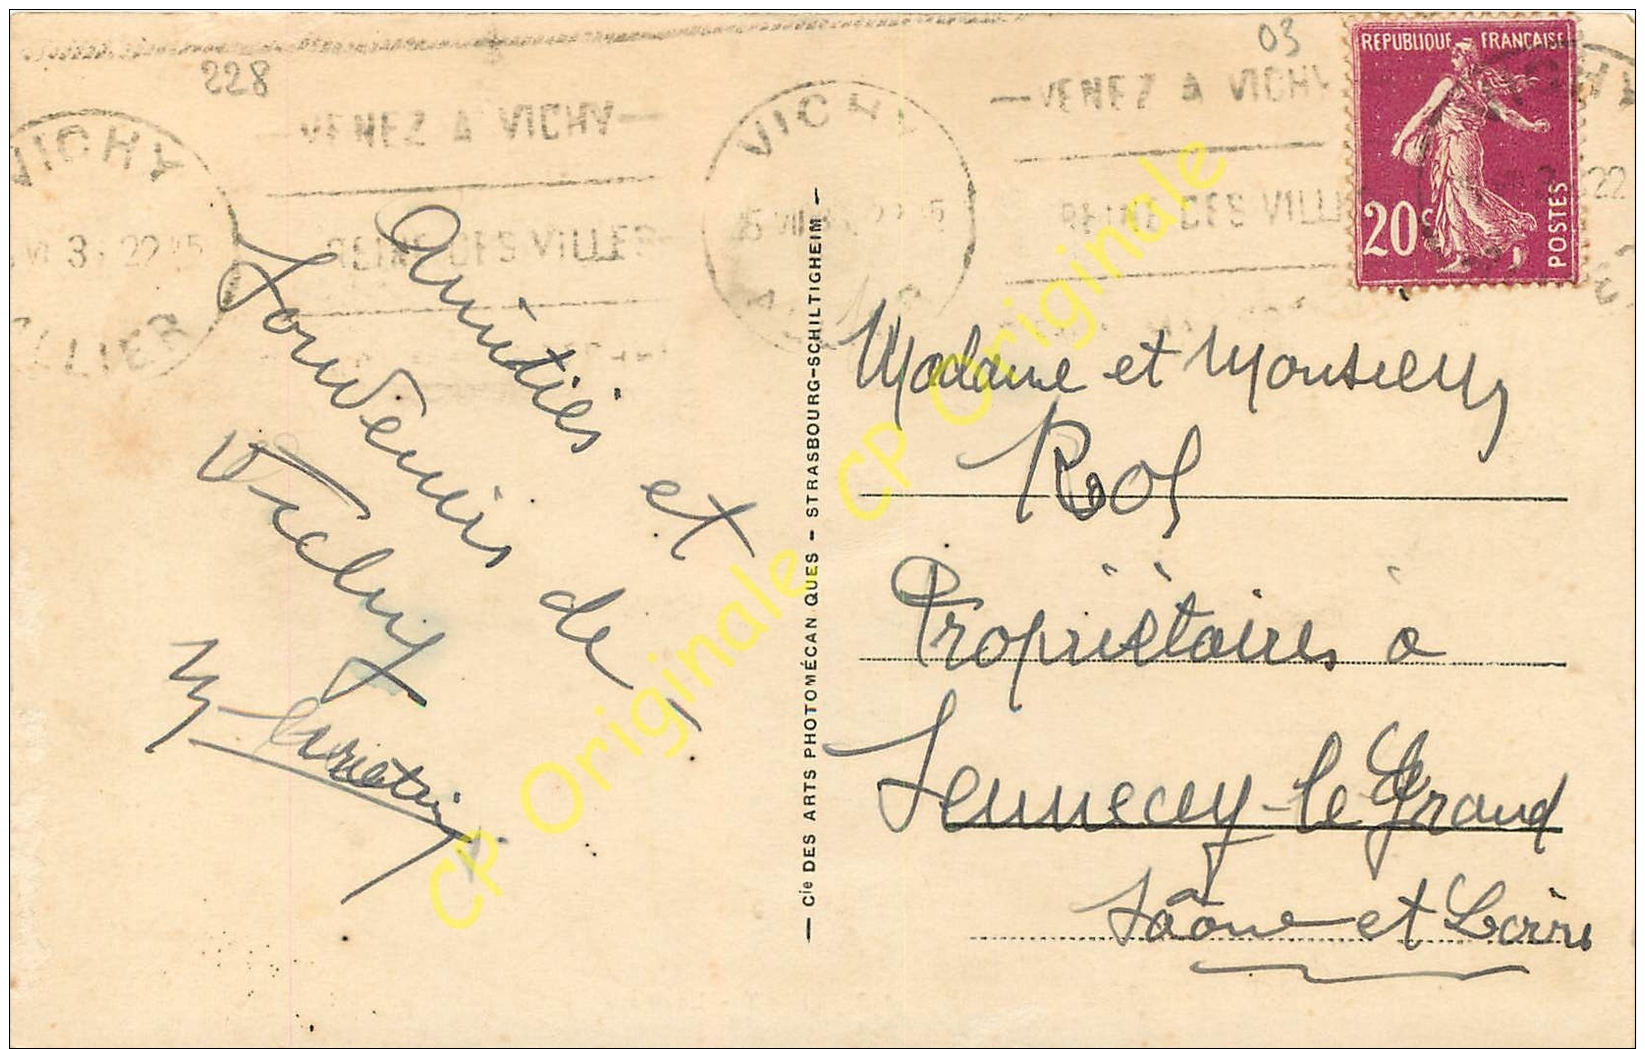 228
03
VICHY
VENEZ A VICHY
REINE DES VILLES
VICHY
VENEZ A VICHY
REINE DES VILLE
REPUBLIQUE FRANÇAISE
20c
POSTES
22
ALLIER
Amitiés et
Souvenirs de
Vichy
Cie DES ARTS PHOTOMÉCANIQUES - STRASBOURG-SCHILTIGHEIM
Madame et Monsieur
Propriétaires a
Sennecey-le Grand
Saône et Loire
CP Originale
CP Originale